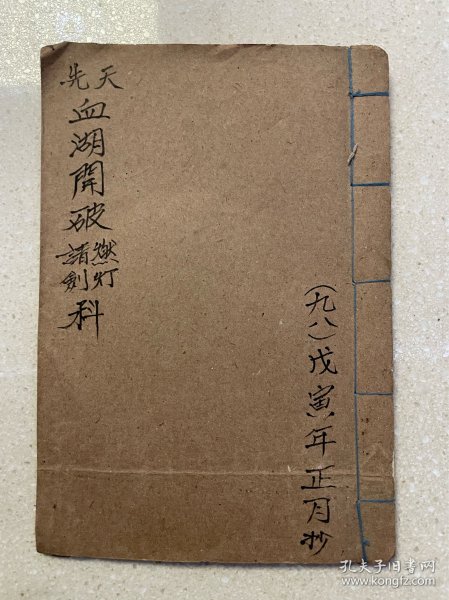 (九八)戊寅年正月抄
先天
血湖開破
燃灯
請剑
科
孔夫子旧书网
www.kongfz.com